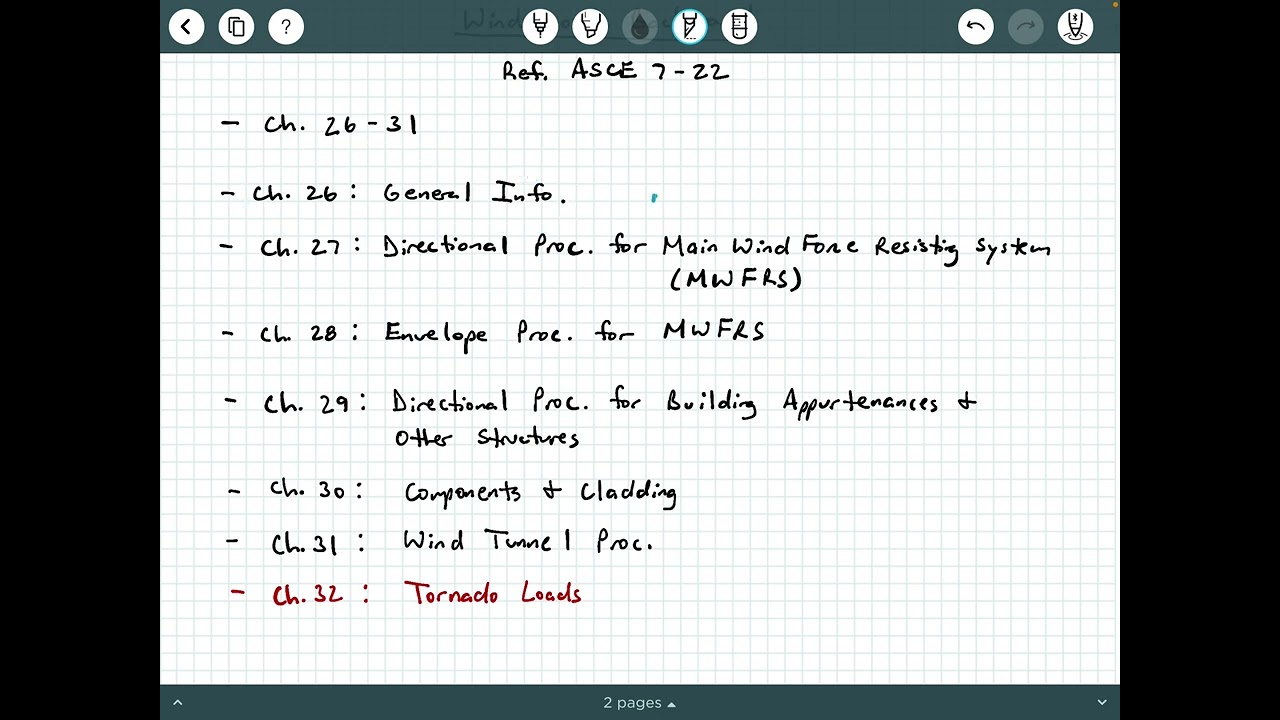 Ref. ASCE 7-22
- Ch. 26-31
- Ch. 26: General Info.
- Ch. 27: Directional Proc. for Main Wind Force Resisting System
(MWFRS)
- Ch. 28: Envelope Proc. for MWFRS
- Ch. 29: Directional Proc. for Building Appurtenances &
Other Structures
- Ch. 30: Components & Cladding
- Ch. 31: Wind Tunnel Proc.
- Ch. 32: Tornado Loads
2 pages